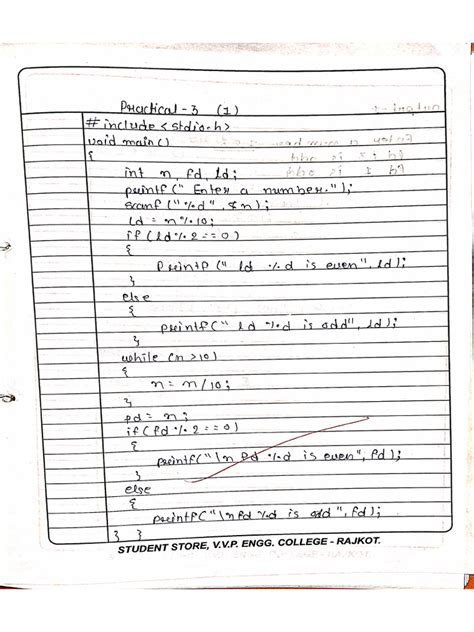 Practical - 3 (1)
# include <stdio.h>
void main()
{
int n, fd, ld;
printf(" Enter a number.");
scanf("%d", &n);
ld = n%10;
if (ld%2==0)
{
Printf(" ld %d is even", ld);
}
else
{
printf(" ld %d is odd", ld);
}
while (n >10)
{
n = n/10;
}
fd = n;
if (fd %2==0)
{
printf("\n fd %d is even", fd);
}
else
{
printf("\n fd %d is odd", fd);
} }
STUDENT STORE, V.V.P. ENGG. COLLEGE - RAJKOT.